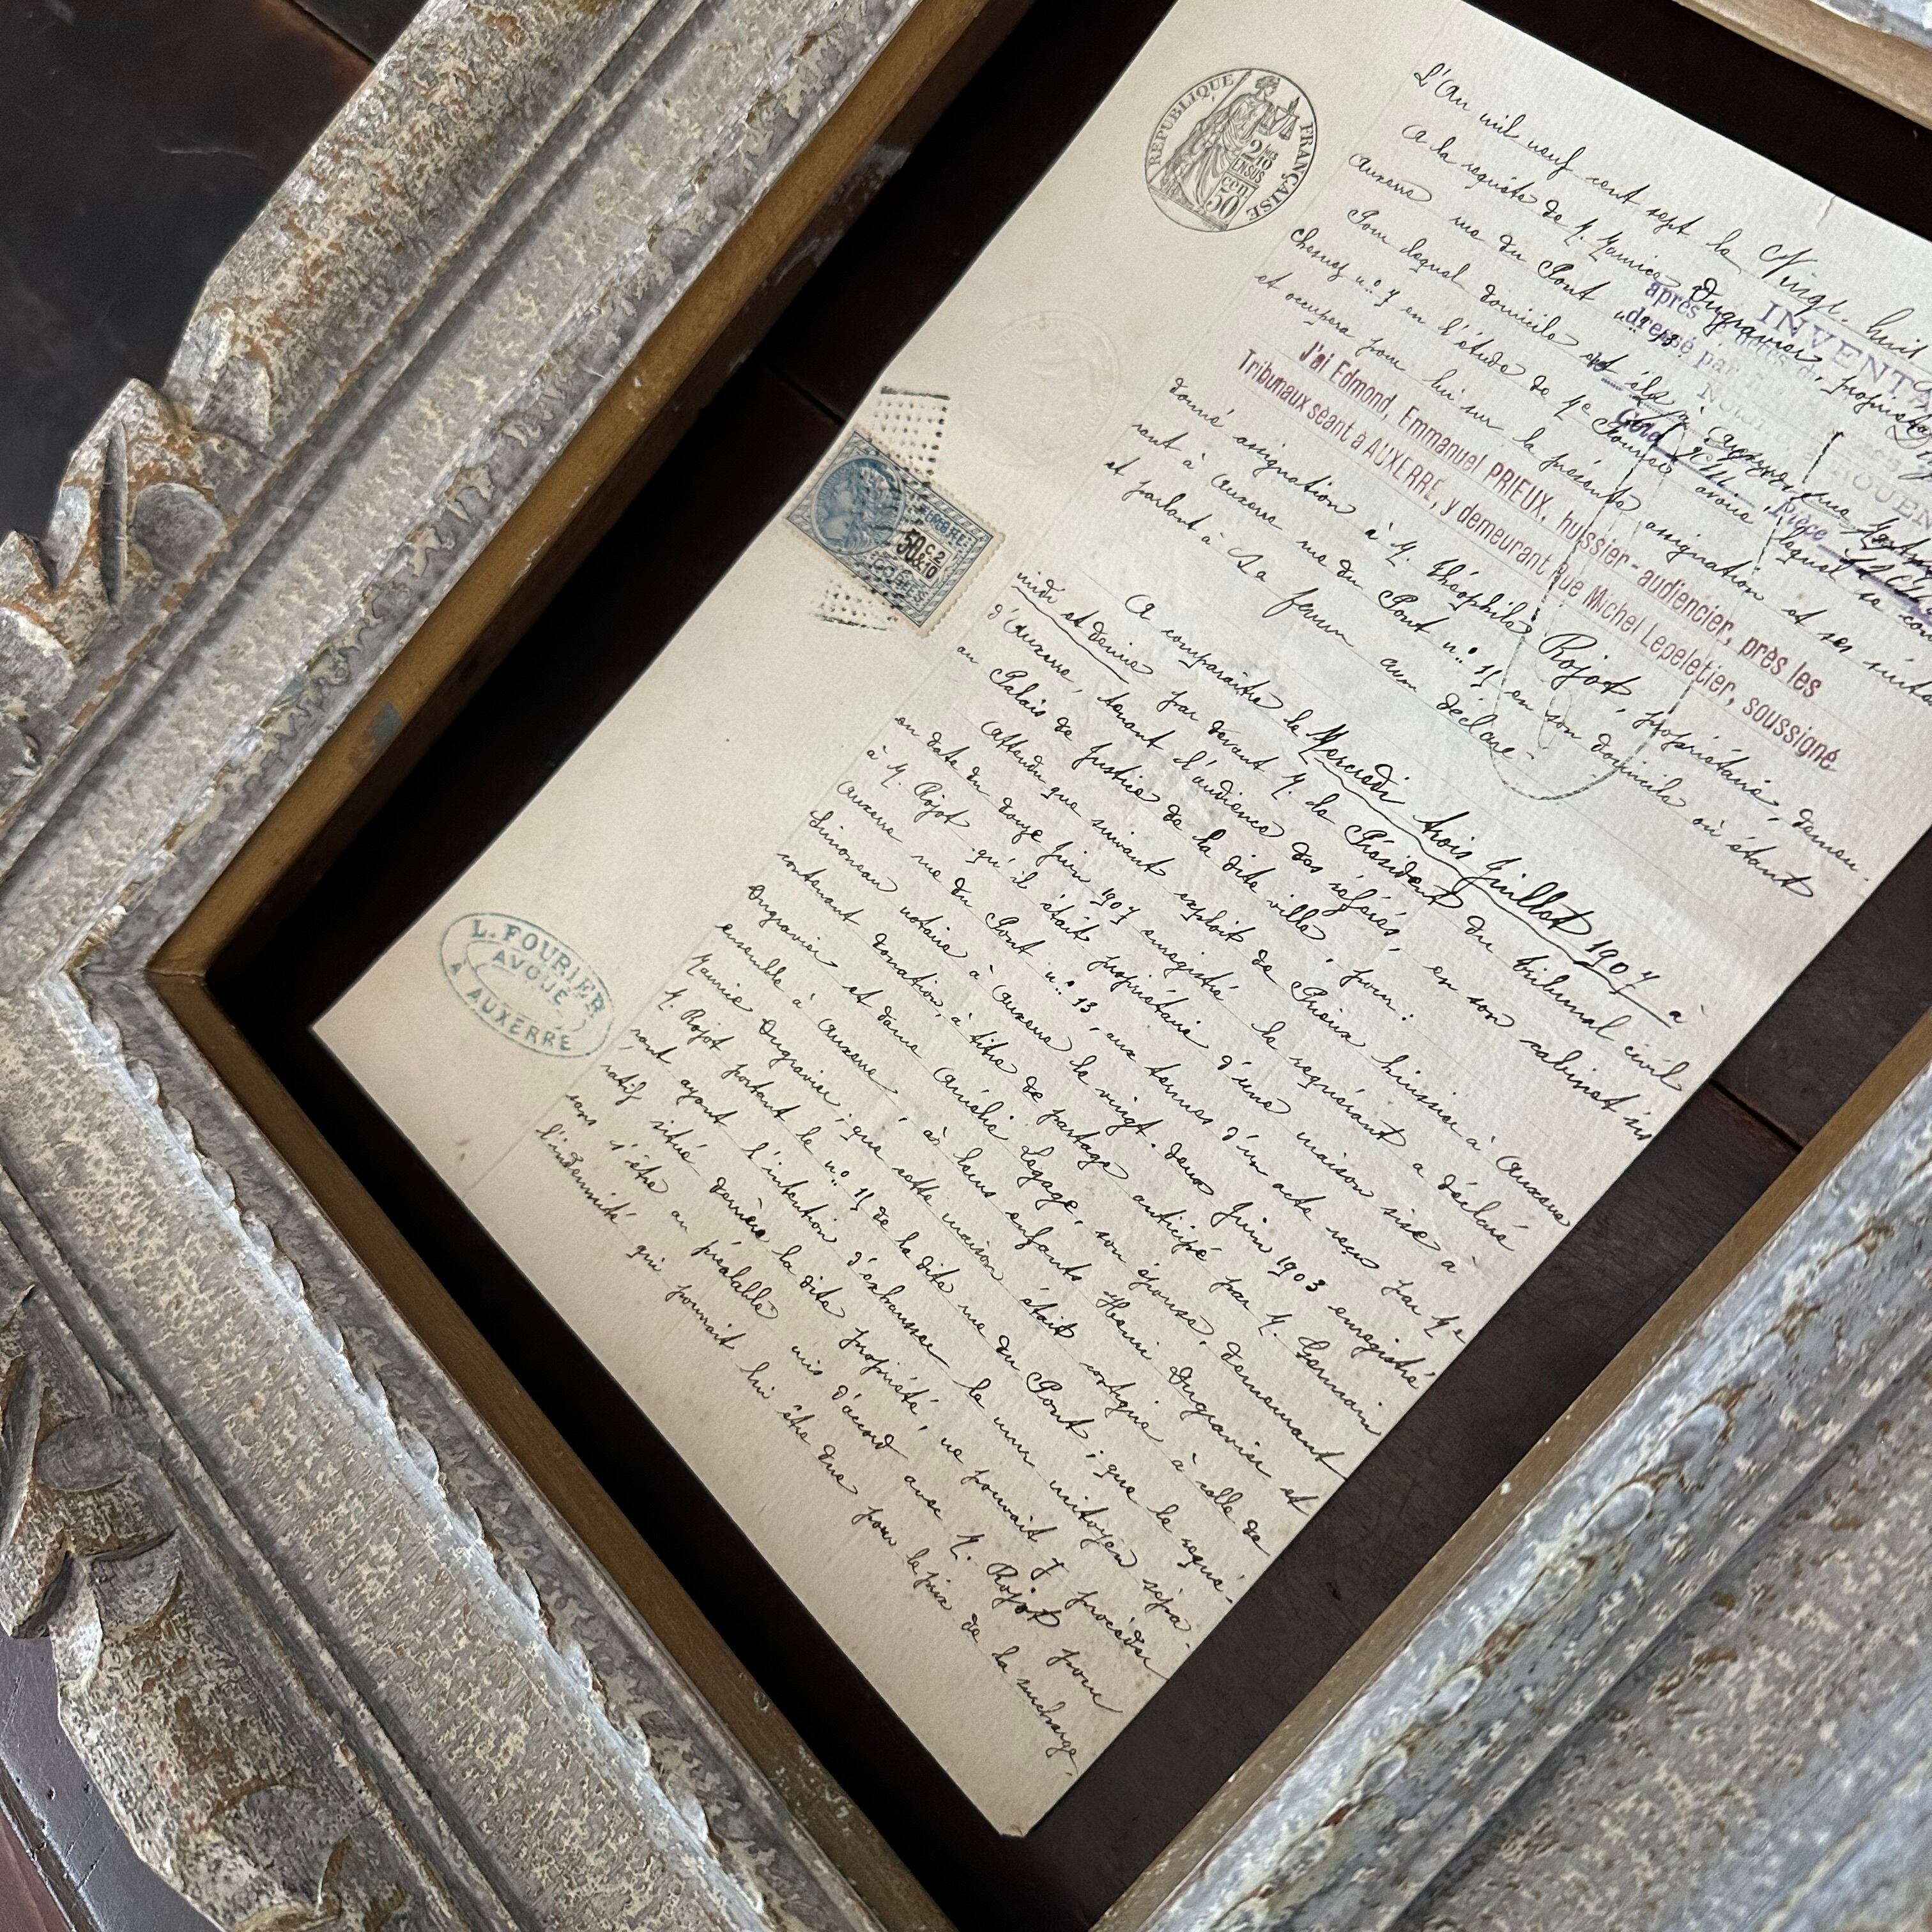 REPUBLIQUE FRANÇAISE
2/10 EN SUS
50 cen
L'An mil neuf cent sept le Vingt-huit
A la requête de M. Maurice Dugravier, propriétaire
Auxerre rue du Pont n°
INVENTA
après
dressé par
Pour lequel domicile est élu à Auxerre, rue
Chesnez n° 7 en l'étude de Me Fourier avoué, lequel se cons
Pièce
et occupera pour lui sur la présente assignation et ses suites
J'ai Edmond, Emmanuel PRIEUX, huissier-audiencier, près les
Tribunaux séant à AUXERRE, y demeurant Rue Michel Lepeletier, soussigné
donné assignation à M. Théophile Rojot, propriétaire, demeu-
rant à Auxerre rue du Pont n° 11 en son domicile où étant
et parlant à Sa femme ainsi déclaré-
TIMBRE
50c 2/10
EN SUS
A comparaître le Mercredi trois Juillet 1907 à
midi et demie par devant M. le Président du tribunal civil
d'Auxerre, tenant l'audience des référés, en son cabinet sis
au Palais de Justice de la dite ville, pour:
Attendu que suivant exploit de Prieux huissier à Auxerre
en date du douze Juin 1907 enregistré le requérant a déclaré
à M. Rojot qu'il était propriétaire d'une maison sise à
Auxerre rue du Pont n° 13, aux termes d'un acte reçu par Me
Limoneau notaire à Auxerre le vingt-deux Juin 1903 enregistré
contenant donation, à titre de partage anticipé par M. Germain
Dugravier et dame Amélie Legage, son épouse, demeurant
ensemble à Auxerre, à leurs enfants Henri Dugravier et
Maurice Dugravier; que cette maison était contigue à celle de
M. Rojot portant le n° 11 de la dite rue du Pont; que le requé-
rant ayant l'intention d'exhausser le mur mitoyen sépa-
ratif situé derrière la dite propriété, ne pouvait y procéder
sans s'être au préalable mis d'accord avec M. Rojot pour
l'indemnité qui pourrait lui être due pour le prix de la surcharge,
L. FOURIER
AVOUÉ
A AUXERRE